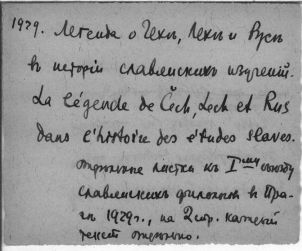 1929. Легенда о Чехѣ, Лехѣ и Русѣ
въ исторіи славянскихъ изученій.
La légende de Čech, Lech et Rus
dans l'histoire des études slaves.
отдѣльные листки къ I<sup>ому</sup> съѣзду
славянскихъ филологовъ въ Пра-
гѣ 1929 г., на 2 стр. каждый
текст отдѣльно.